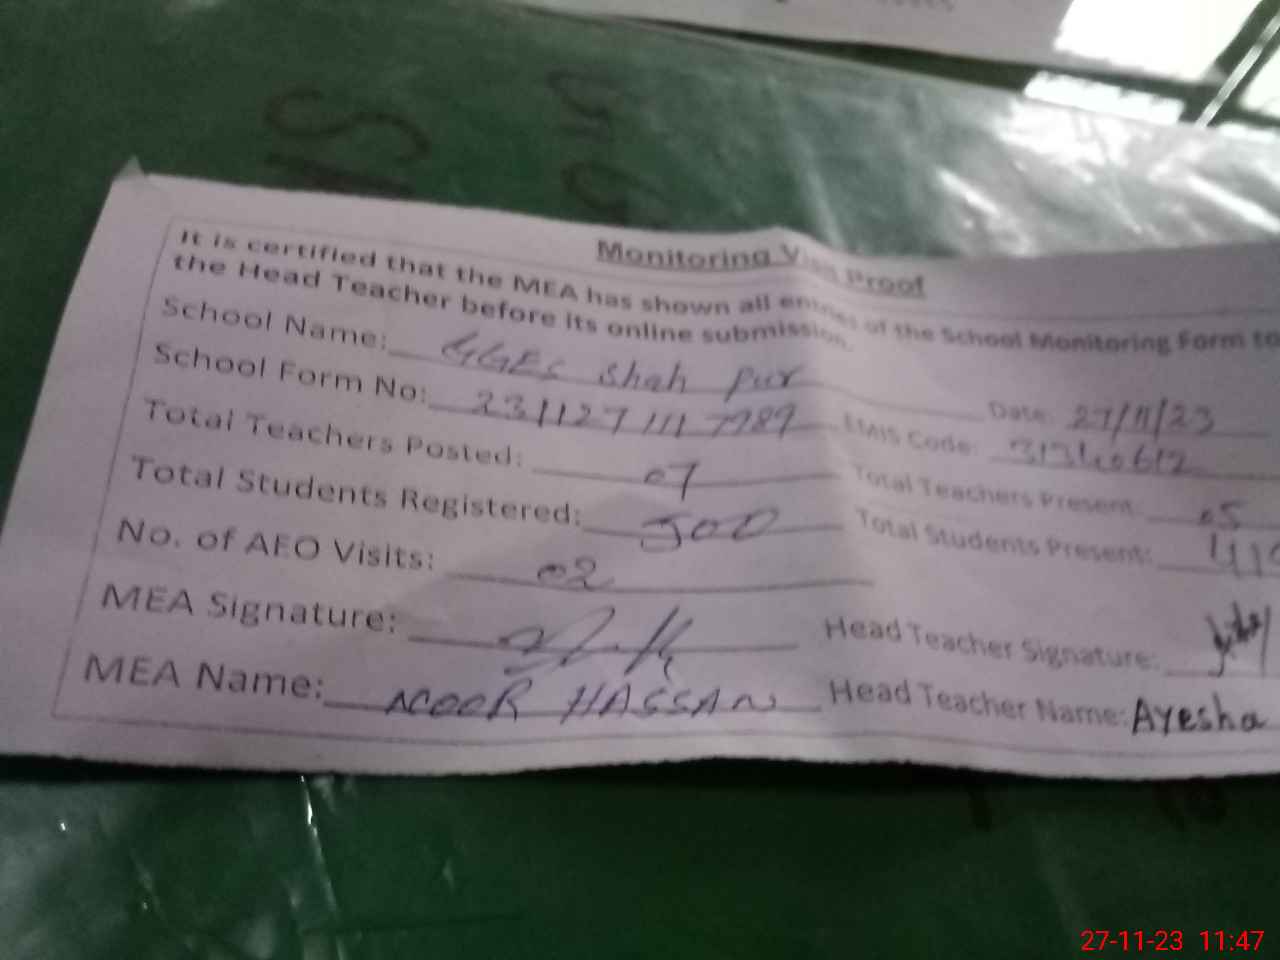 Monitoring Visit Proof
It is certified that the MEA has shown all entries of the School Monitoring Form to
the Head Teacher before its online submission.
School Name: GGES Shah pur Date: 27/11/23
School Form No: 231127111 7989 EMIS Code: 31340612
Total Teachers Posted: 07 Total Teachers Present: 05
Total Students Registered: 500 Total Students Present:
No. of AEO Visits: 02
MEA Signature: Head Teacher Signature:
MEA Name: NOOR HASSAN Head Teacher Name: Ayesha
27-11-23 11:47